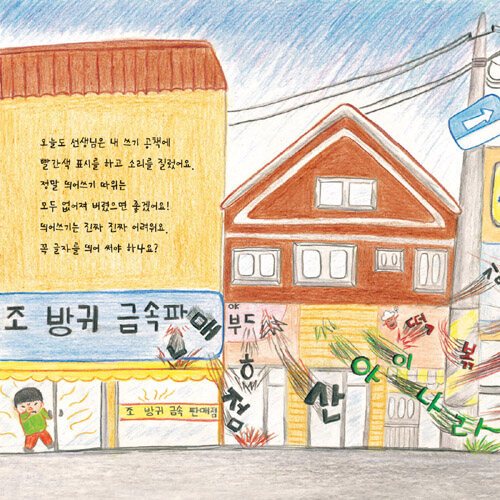 오늘도 선생님은 내 쓰기 공책에
빨간색 표시를 하고 소리를 질렀어요.
정말 띄어쓰기 따위는
모두 없어져 버렸으면 좋겠어요!
띄어쓰기는 진짜 진짜 어려워요.
꼭 글자를 띄어 써야 하나요?
조 방귀 금속판매
점
부드
산
아이나라
떡볶
조 방귀 금속 판매점